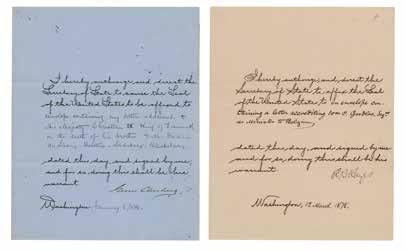 I hereby authorize and direct the
Secretary of State to cause the Seal
of the United States to be affixed to
envelope containing my letter addressed to
His Majesty Christian IX King of Denmark
on the
dated this day and signed by me,
and for so doing this shall be his
warrant.
Washington, January
I hereby authorize and direct the
Secretary of State to affix the Seal
of the United States, to an envelope con-
taining a letter accrediting Wm. C. Goodloe, Esqr.
as Minister to Belgium
dated this day, and signed by me
and for so doing this shall be his
warrant.
R. B. Hayes
Washington, 12 March 1878.